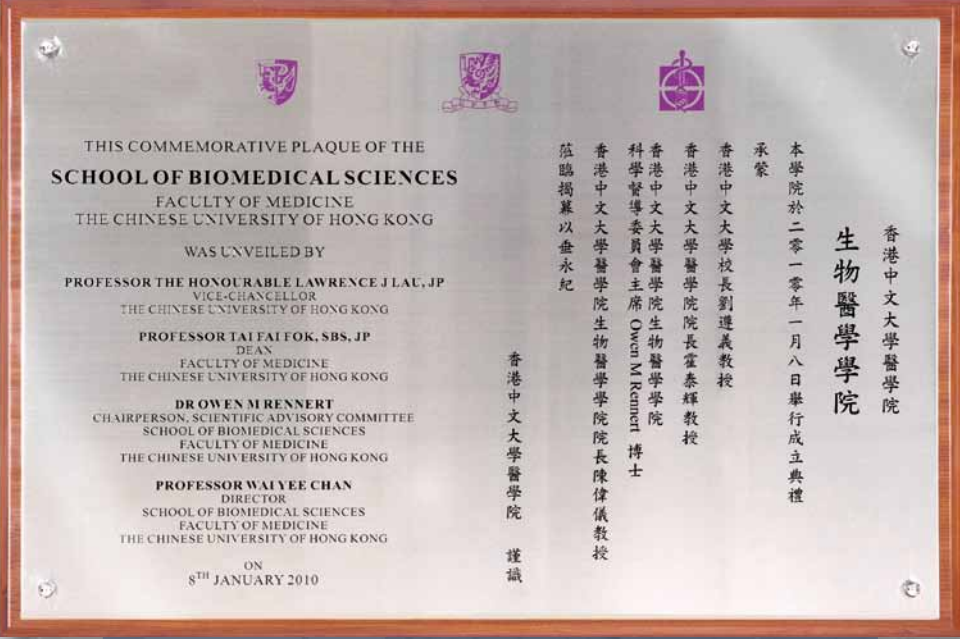 THIS COMMEMORATIVE PLAQUE OF THE
SCHOOL OF BIOMEDICAL SCIENCES
FACULTY OF MEDICINE
THE CHINESE UNIVERSITY OF HONG KONG
WAS UNVEILED BY
PROFESSOR THE HONOURABLE LAWRENCE J LAU, JP
VICE-CHANCELLOR
THE CHINESE UNIVERSITY OF HONG KONG
PROFESSOR TAI FAI FOK, SBS, JP
DEAN
FACULTY OF MEDICINE
THE CHINESE UNIVERSITY OF HONG KONG
DR OWEN M RENNERT
CHAIRPERSON, SCIENTIFIC ADVISORY COMMITTEE
SCHOOL OF BIOMEDICAL SCIENCES
FACULTY OF MEDICINE
THE CHINESE UNIVERSITY OF HONG KONG
PROFESSOR WAI YEE CHAN
DIRECTOR
SCHOOL OF BIOMEDICAL SCIENCES
FACULTY OF MEDICINE
THE CHINESE UNIVERSITY OF HONG KONG
ON
8TH JANUARY 2010
香港中文大學醫學院
生物醫學學院
本學院於二零一零年一月八日舉行成立典禮
承蒙
香港中文大學校長劉遵義教授
香港中文大學醫學院院長霍泰輝教授
香港中文大學醫學院生物醫學學院
科學督導委員會主席 Owen M Rennert 博士
香港中文大學醫學院生物醫學學院院長陳偉儀教授
蒞臨揭幕以垂永紀
香港中文大學醫學院 謹識